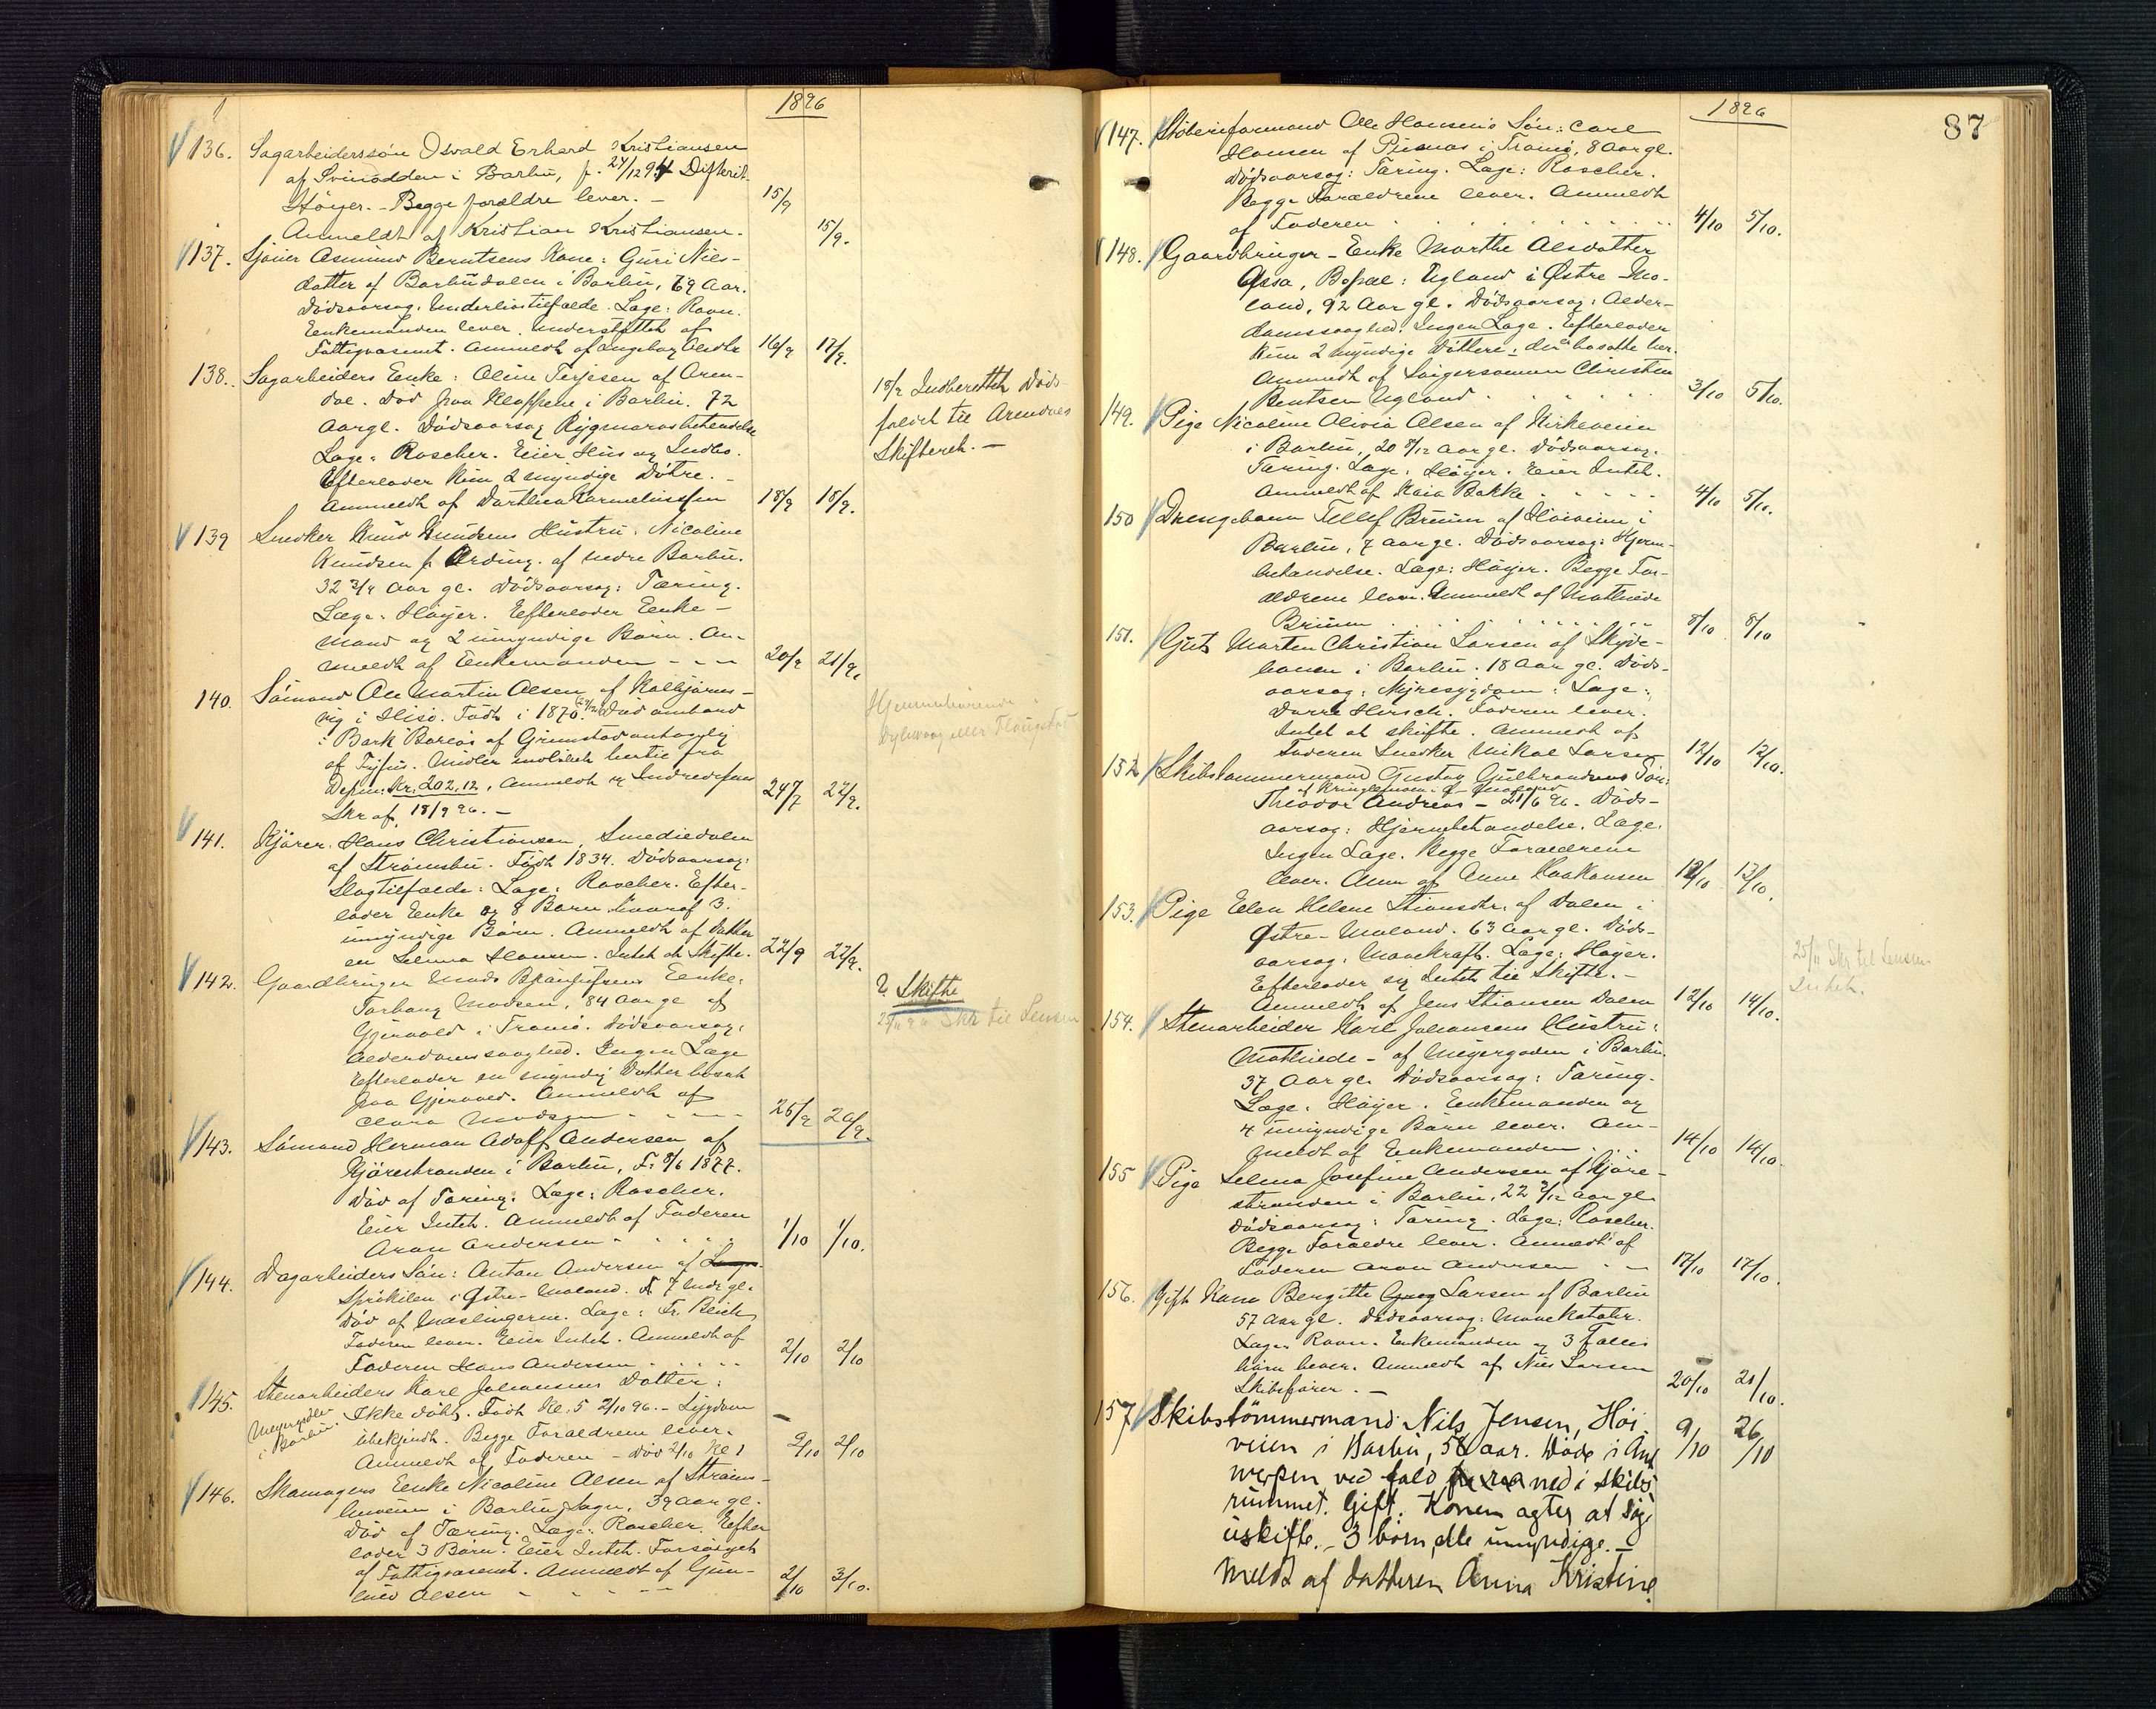 1896
136. Sagarbeiderssøn Osvald Erhard Kristiansen
af Svinodden i Barbu, f. 27/12 94 Difterit.
Høyer. - Begge forældre lever. - 15/9
Anmeldt af Kristian Kristiansen. 15/9.
137. Sjauer Asmund Berntsens Kone: Guri Niels-
datter af Barbudalen i Barbu, 69 Aar.
Dødsaarsag: Underlivstilfælde. Læge: Ravn.
Enkemanden lever. Understøttet af
Fattigvæsenet. Anmeldt af Ingeborg 16/9 17/9.
138. Sagarbeiders Enke: Oline Terjesen af Aren-
dal. Død paa Kloppene i Barbu. 72
Aar gl. Dødsaarsag Rygmarvsbetændelse
Læge: Roscher. Eier Hus og Indbo.
Efterlader kun 2 myndige Døtre. -
Anmeldt af Dorthea Korneliussen 18/9 18/9.
18/9 Indberettet Døds-
faldet til Arendals
Skifteret. -
139 Snedker Knud Knudsens Hustru: Nicoline
Knudsen f. Ording. af nedre Barbu.
32 3/4 Aar gl. Dødsaarsag: Tæring.
Læge: Høyer. Efterlader Enke-
mand og 2 umyndige Børn. An-
meldt af Enkemanden - - - 20/9 21/9.
140. Sømand Ole Martin Olsen af Kolbjørns-
vig i Hisø. Født i 1870. Død ombord
i Bark Boreas af Grimstad antagelig
af Tyfus. Midler
Depm: Kr. 202,12, Anmeldt ved
Skr af 18/9 96. - 22/9.
Hjemmehørende
141. Kjører Hans Christiansen, Smediedalen
af Strømsbu. Født 1834. Dødsaarsag:
Slagtilfælde: Læge: Roscher. Efter-
lader Enke og 8 Børn hvoraf 3
umyndige Børn. Anmeldt af Datter
en Selma Hansen. Intet at Skifte. 22/9 22/9.
142. Gaardbruger Mads Enke:
Torborg Madsen, 84 Aar gl af
Gjervold i Tromø. Dødsaarsag:
Alderdomssvaghed. Ingen Læge
Efterlader en myndig Datter bosat
paa Gjervold. Anmeldt af
Clara Madsen - - - 25/9 26/9.
? Skifte
25/11 96 Skr til Lensm
143. Sømand Herman Adolf Andersen af
Kjørestranden i Barbu, F: 8/6 1877.
Død af Tæring. Læge: Roscher.
Eier Intet. Anmeldt af Faderen
Aron Andersen - - - 1/10 1/10.
144. Dagarbeiders Søn: Anton Andersen af
Sprækilen i Østre-Moland. 7 Mdr gl.
Død af Mæslingerne. Læge: Fr. Bleich
Faderen lever. Eier Intet. Anmeldt af
Faderen Hans Andersen - - - 2/10 2/10
145. Stenarbeider Karl Johansens Datter:
Meyergaden i Barbu. Ikke døbt. Født Kl. 5 2/10 96. - Sygdom
ubekjendt. Begge Forældrene lever.
Anmeldt af Faderen - Død 2/10 Kl 1 2/10 2/10
146. Skomagers Enke Nicoline Olsen af Strøms-
buveien i Barbu Sogn, 39 Aar gl.
Død af Tæring. Læge: Roscher. Efter
lader 3 Børn. Eier Intet. Forsørget
af Fattigvæsenet. Anmeldt af Gun-
hild Olsen - - - 2/10 3/10.
1896
87
147. Støberiformand Ole Hansens Søn: Carl
Hansen af Pusnæs i Tromø, 8 Aar gl.
Dødsaarsag: Tæring. Læge: Roscher.
Begge Forældrene lever. Anmeldt
af Faderen 4/10 5/10.
148. Gaardbruger-Enke Marthe Olsdatter
Assa, Bopæl: Ugland i Østre-Mo-
land, 92 Aar gl. Dødsaarsag: Alder-
domssvaghed. Ingen Læge. Efterlader
kun 2 myndige Døttere: der bosatte her.
Anmeldt af Svigersønnen Christen
Bentsen Ugland 3/10 5/10.
149. Pige Nicoline Olivia Olsen af Kirkeveien
i Barbu, 20 8/12 Aar gl. Dødsaarsag:
Tæring. Læge: Høyer. Eier Intet.
Anmeldt af Kaia Bakke 4/10 5/10.
150 Drengebarn Tellef Bruun af Høiveien i
Barbu, 7 Aar gl. Dødsaarsag: Hjerne-
betændelse. Læge: Høyer. Begge For-
ældrene lever. Anmeldt af Mathilde
Bruun 8/10 8/10
151. Gut Morten Christian Larsen af Skyde-
banen i Barbu. 18 Aar gl. Døds-
aarsag: Nyresygdom: Læge:
Hirsch. Faderen lever.
Intet at skifte. Anmeldt af
Faderen Snedker Mikal Larsen 12/10 12/10.
152 Skibstømmermand Gustav Gulbrandsens Søn:
Theodor Andreas - 21/6 96. Døds-
aarsag: Hjernebetændelse. Læge:
Ingen Læge. Begge Forældrene
lever. Anm af Anne Haakonsen 12/10 12/10.
153. Pige Ellen Helene Stiansdtr. af Dalen i
Østre-Moland. 63 Aar gl. Døds-
aarsag: Mavekræft. Læge: Høyer.
Efterlader sig Intet til Skifte. -
Anmeldt af Jens Stiansen Dalen 12/10 14/10.
25/11 Skr til Lensm.
Intet.
154. Stenarbeider Karl Johansens Hustru:
Mathilde - af Meyergaden i Barbu.
37 Aar gl. Dødsaarsag: Tæring.
Læge: Høyer. Enkemanden og
4 umyndige Børn lever. An-
meldt af Enkemanden 14/10 14/10.
155 Pige Selma Josefine Andersen af Kjøre-
stranden i Barbu, 22 2/12 Aar gl.
Dødsaarsag: Tæring. Læge: Roscher.
Begge Forældre lever. Anmeldt af
Faderen Aron Andersen 17/10 17/10.
156. Gift Kone Bergitte Larsen af Barbu
57 Aar gl. Dødsaarsag: Mavekatahr.
Læge: Ravn. Enkemanden og 3 Fælles
børn lever. Anmeldt af Nils Larsen
Skibsfører. - 20/10 21/10.
157 Skibstømmermand Nils Jensen, Høi
veien i Barbu, 58 aar. Døde i Ant
werpen ved fald ned i skibs
rummet. Gift. Konen agter at søge
uskifte. - 3 børn, alle umyndige. -
Meldt af datteren Anna Kristine. 9/10 26/10